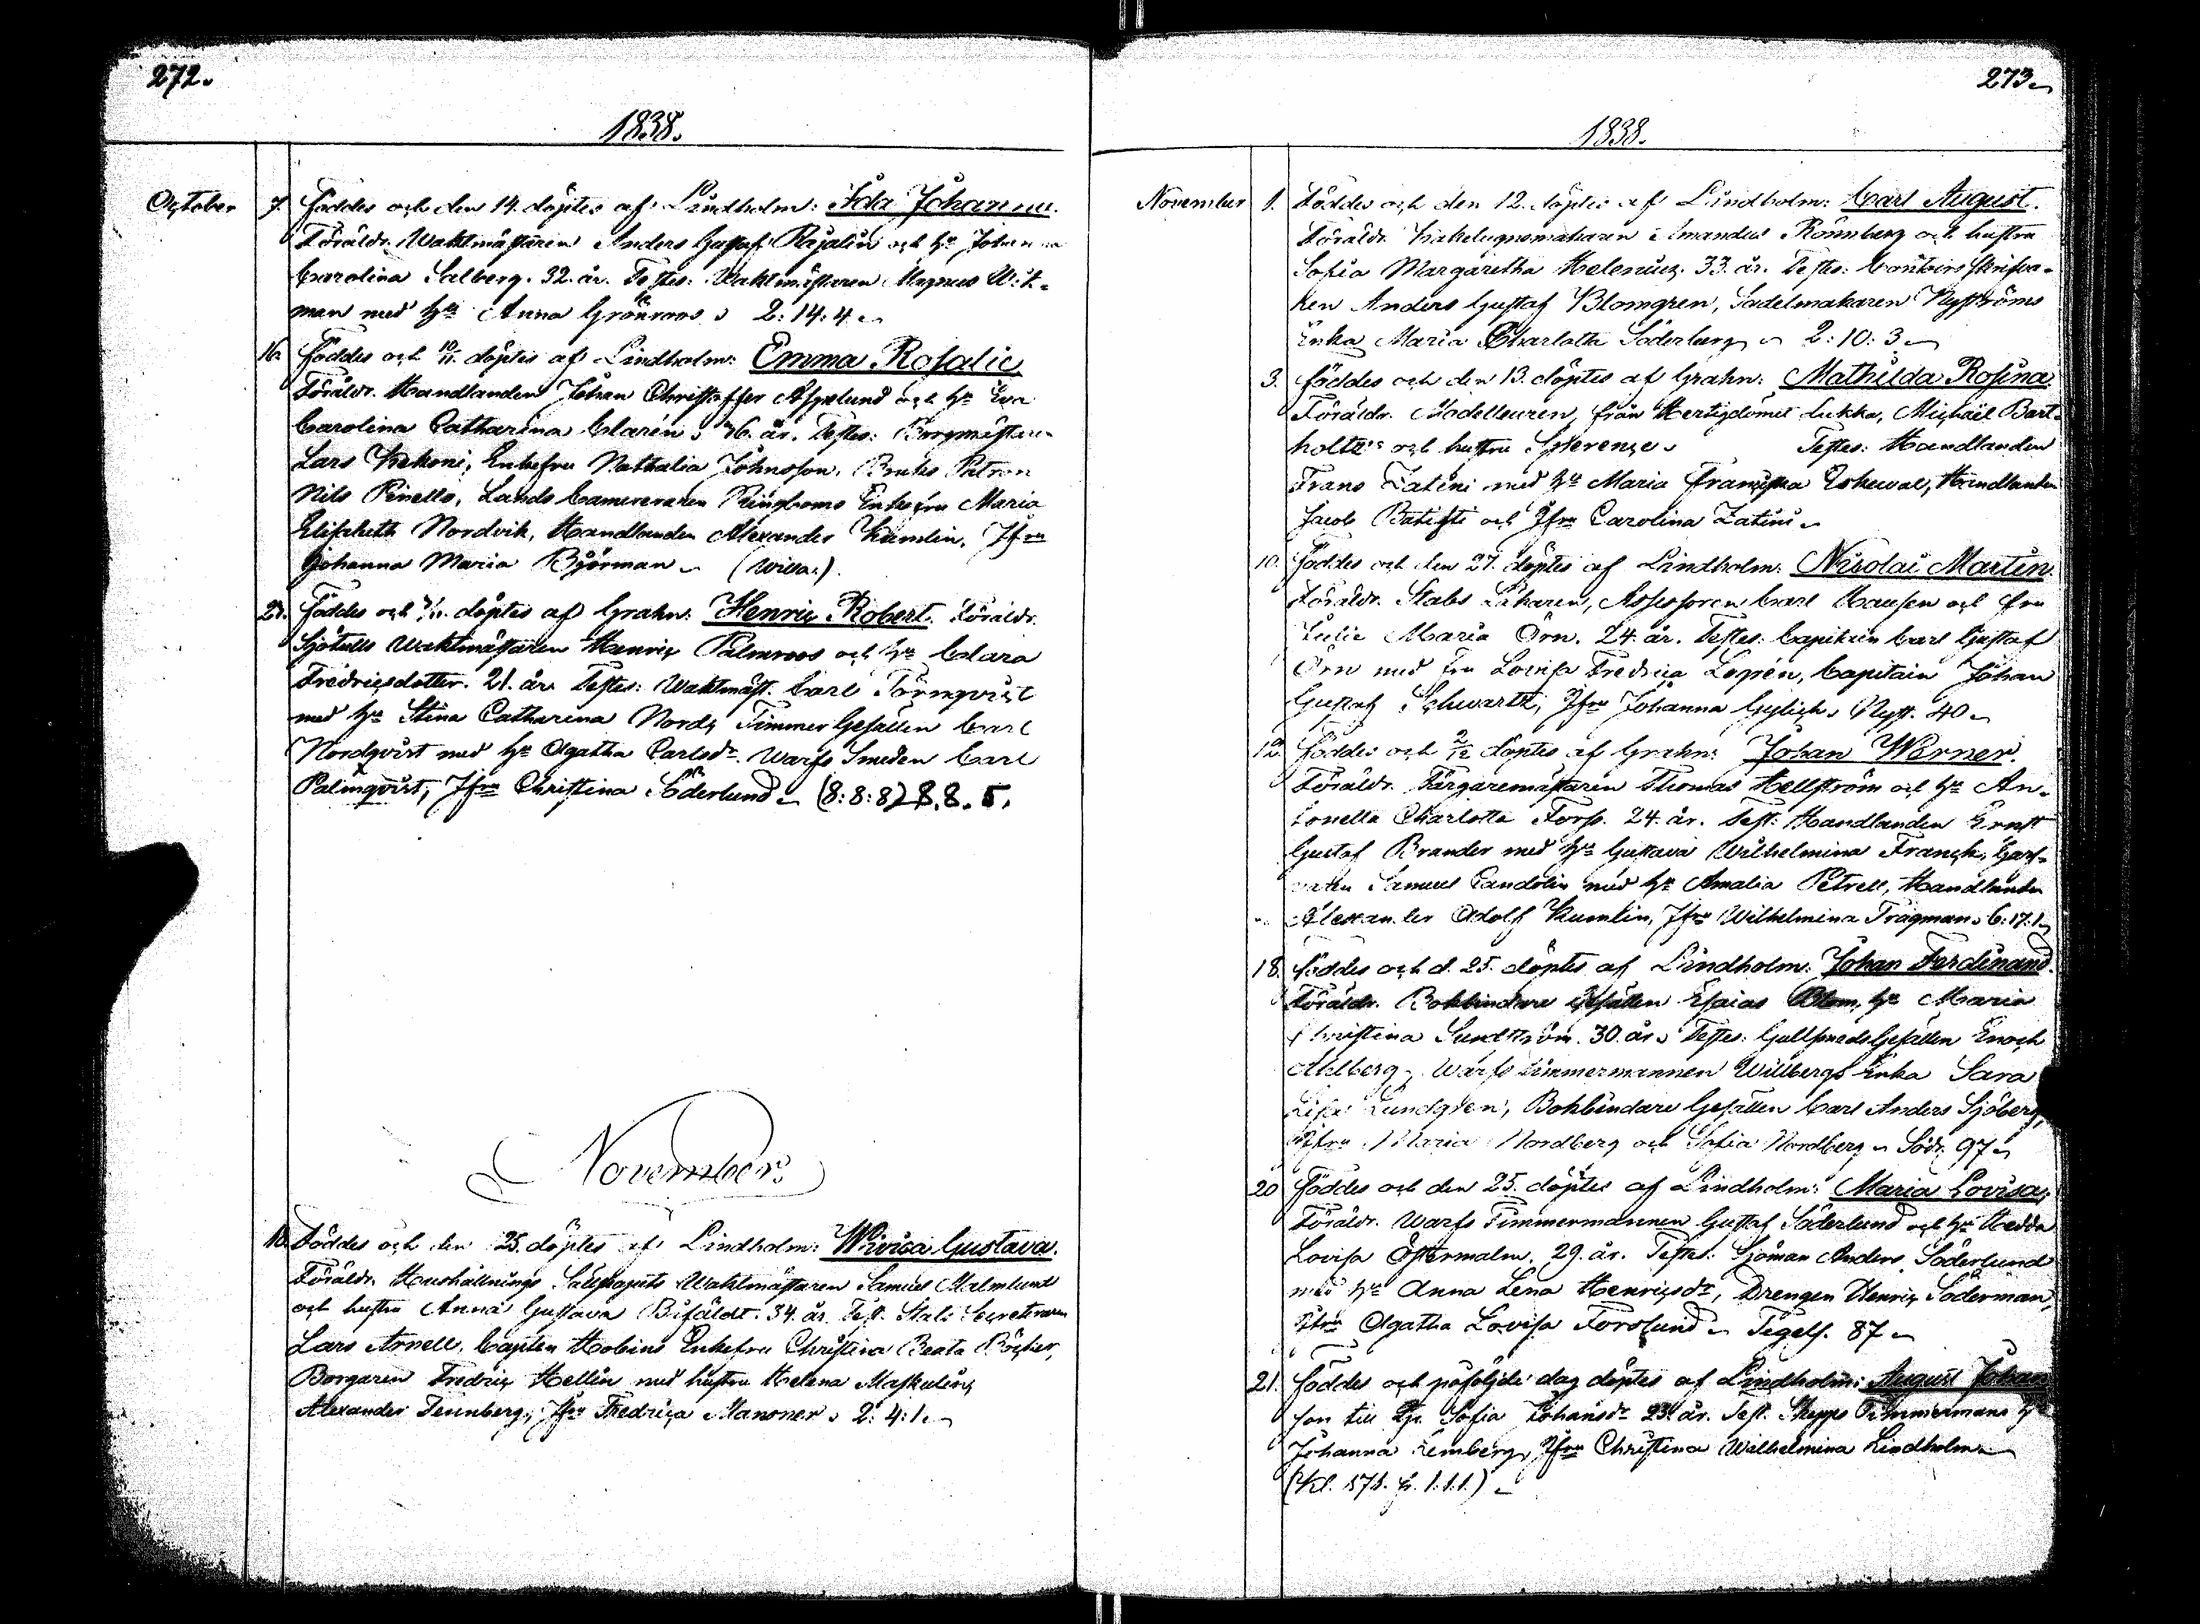 272.
1838.
October 7. Föddes och den 14. döptes af Lindholm: Ida Johanna.
Föräldr. Waktmästaren Anders Gustaf Rajalin och h:u Johanna
Carolina Salberg. 32. år. Testes: Waktmästaren Magnus Wit-
man med h:u Anna Grönroos 2:14:4.
16. Föddes och 10/11. döptes af Lindholm: Emma Rosalie
Föräldr. Handlanden Johan Christoffer Aspelund och h:u Eva
Carolina Catharina Clarén 36. år. Testes: Borgmästaren
Lars Krekoni, Enkefru Nathalia Johnsson, Bruks Patron
Nils Pinello, Lands Camereraren Ringboms Enkefru Maria
Elisabeth Nordvik, Handlanden Alexander Kumlin, Jfru
Johanna Maria Björman (Wiva.)
27. Föddes och /11. döptes af Grahn: Henric Robert. Föräldr.
Sjötulls Waktmästaren Henric Palmroos och h:u Clara
Fredricsdotter. 21. år. Testes: Waktmäst. Carl Törnqvist
med h:u Stina Catharina Nord, Timmer Gesällen Carl
Nordqvist med h:u Agatha Carlsdr. Warfs Smeden Carl
Palmqvist, Jfru Christina Söderlund (8:8:8) 8.8.5.
November.
10. Föddes och den 25. döptes af Lindholm: Wivica Gustava.
Föräldr. Hushållnings Sällskapets Waktmästaren Samuel Malmlund
och hustru Anna Gustava Bifäldt. 34. år. Test. Stats Secreteraren
Lars Arnell, Capten Hobins Enkefru Christina Beata Böcker,
Borgaren Fredric Hellin med hustru Helena Maskulin,
Alexander Tennberg, Jfru Fredrica Mansner 2:4:1.
273.
1838.
November 1. Föddes och den 12. döptes af Lindholm: Carl August.
Föräldr. Kakelugnsmakaren Amandus Rönnberg och hustru
Sofia Margaretha Helenius. 33. år. Testes: Contoirs Skrifva-
ren Anders Gustaf Blomgren, Sadelmakaren Nyströms
Enka Maria Charlotta Söderberg 2:10:3
3. Föddes och den 13. döptes af Grahn: Mathilda Rosina
Föräldr. Modelleuren, från Hertigdömet Lukka, Michaël Bart-
holtzi och hustru Testes: Handlanden
Frans Zatini med h:u Maria Fransiska Handlanden
Jacob Batisti och Jfru Carolina Zatini
10. Föddes och den 27. döptes af Lindholm: Nicolai Martin.
Föräldr. Stabs Läkaren, Assessoren Carl Hausen och fru
Julie Maria Örn. 24. år. Testes: Capitain Carl Gustaf
Örn med Fru Lovisa Fredrica Lopén, Capitain Johan
Gustaf Schwartz, Jfru Johanna Gylich. Nytt. 40
12. Föddes och 2/12 döptes af Grahn: Johan Werner.
Föräldr. Färgaremästaren Thomas Hellström och h:u An-
tonetta Charlotta Forss. 24. år. Test: Handlanden Ernst
Gustaf Brander med h:u Gustava Wilhelmina Franck, Garf-
varen Samuel Candolin med h:u Amalia Petrell, Handlanden
Alexander Adolf Kumlin, Jfru Wilhelmina Trägman 6:17:1
18. Föddes och d. 25. döptes af Lindholm: Johan Ferdinand.
Föräldr. Bokbindare Gesällen Esaias Blom, h:u Maria
Christina Sundström. 30. år. Testes: Gullsmeds Gesällen Enoch
Ahlberg, Warfs Timmermannen Willbergs Enka Sara
Lisa Lundgren, Bokbindare Gesällen Carl Anders Sjöberg,
Jfru Maria Nordberg och Sofia Nordberg Södr. 97
20 Föddes och den 25. döptes af Lindholm: Maria Lovisa,
Föräldr. Warfs Timmermannen Gustaf Söderlund och h:u Hedda
Lovisa Östermalm. 29. år. Testes: Sjöman Anders Söderlund
med h:u Anna Lena Henricsdr, Drengen Henric Söderman,
Jfru Agatha Lovisa Forslund Tegels. 87
21. Föddes och påföljde dag döptes af Lindholm: August Johan
son till Sofia Johansdr 23. år. Test. Skepps Timmermans h:u
Johanna Lemberg, Jfru Christina Wilhelmina Lindholm
(Kl. 571. 1.1.1.)